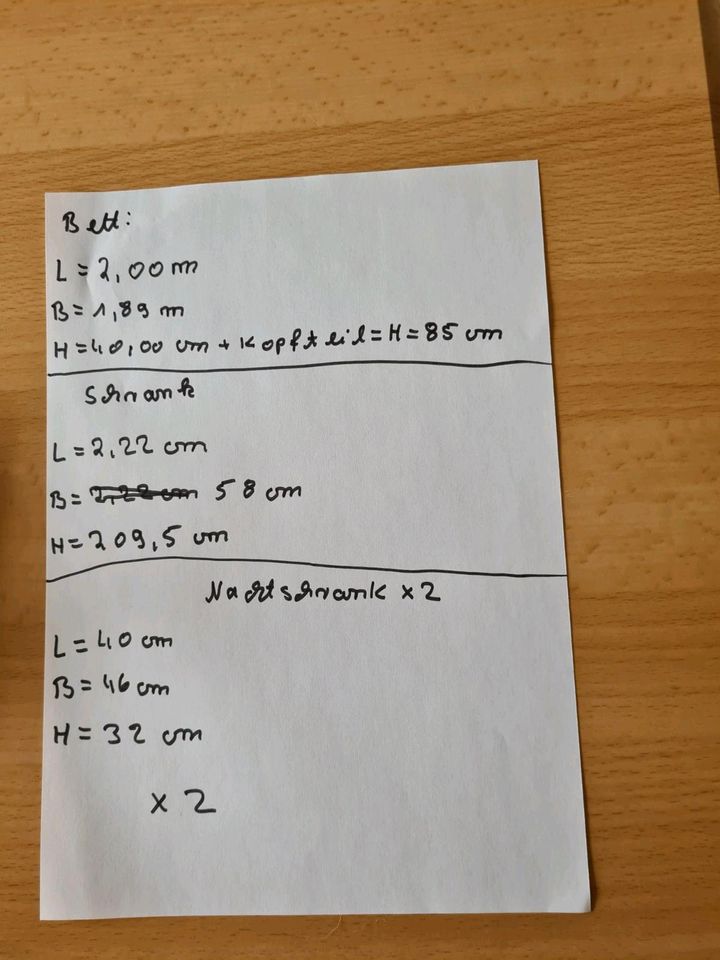 Bett:
L = 2,00 m
B = 1,89 m
H = 40,00 cm + Kopfteil = H = 85 cm
Schrank
L = 2,22 cm
B = 2,22 cm 58 cm
H = 209,5 cm
Nachtschrank x 2
L = 40 cm
B = 46 cm
H = 32 cm
x 2